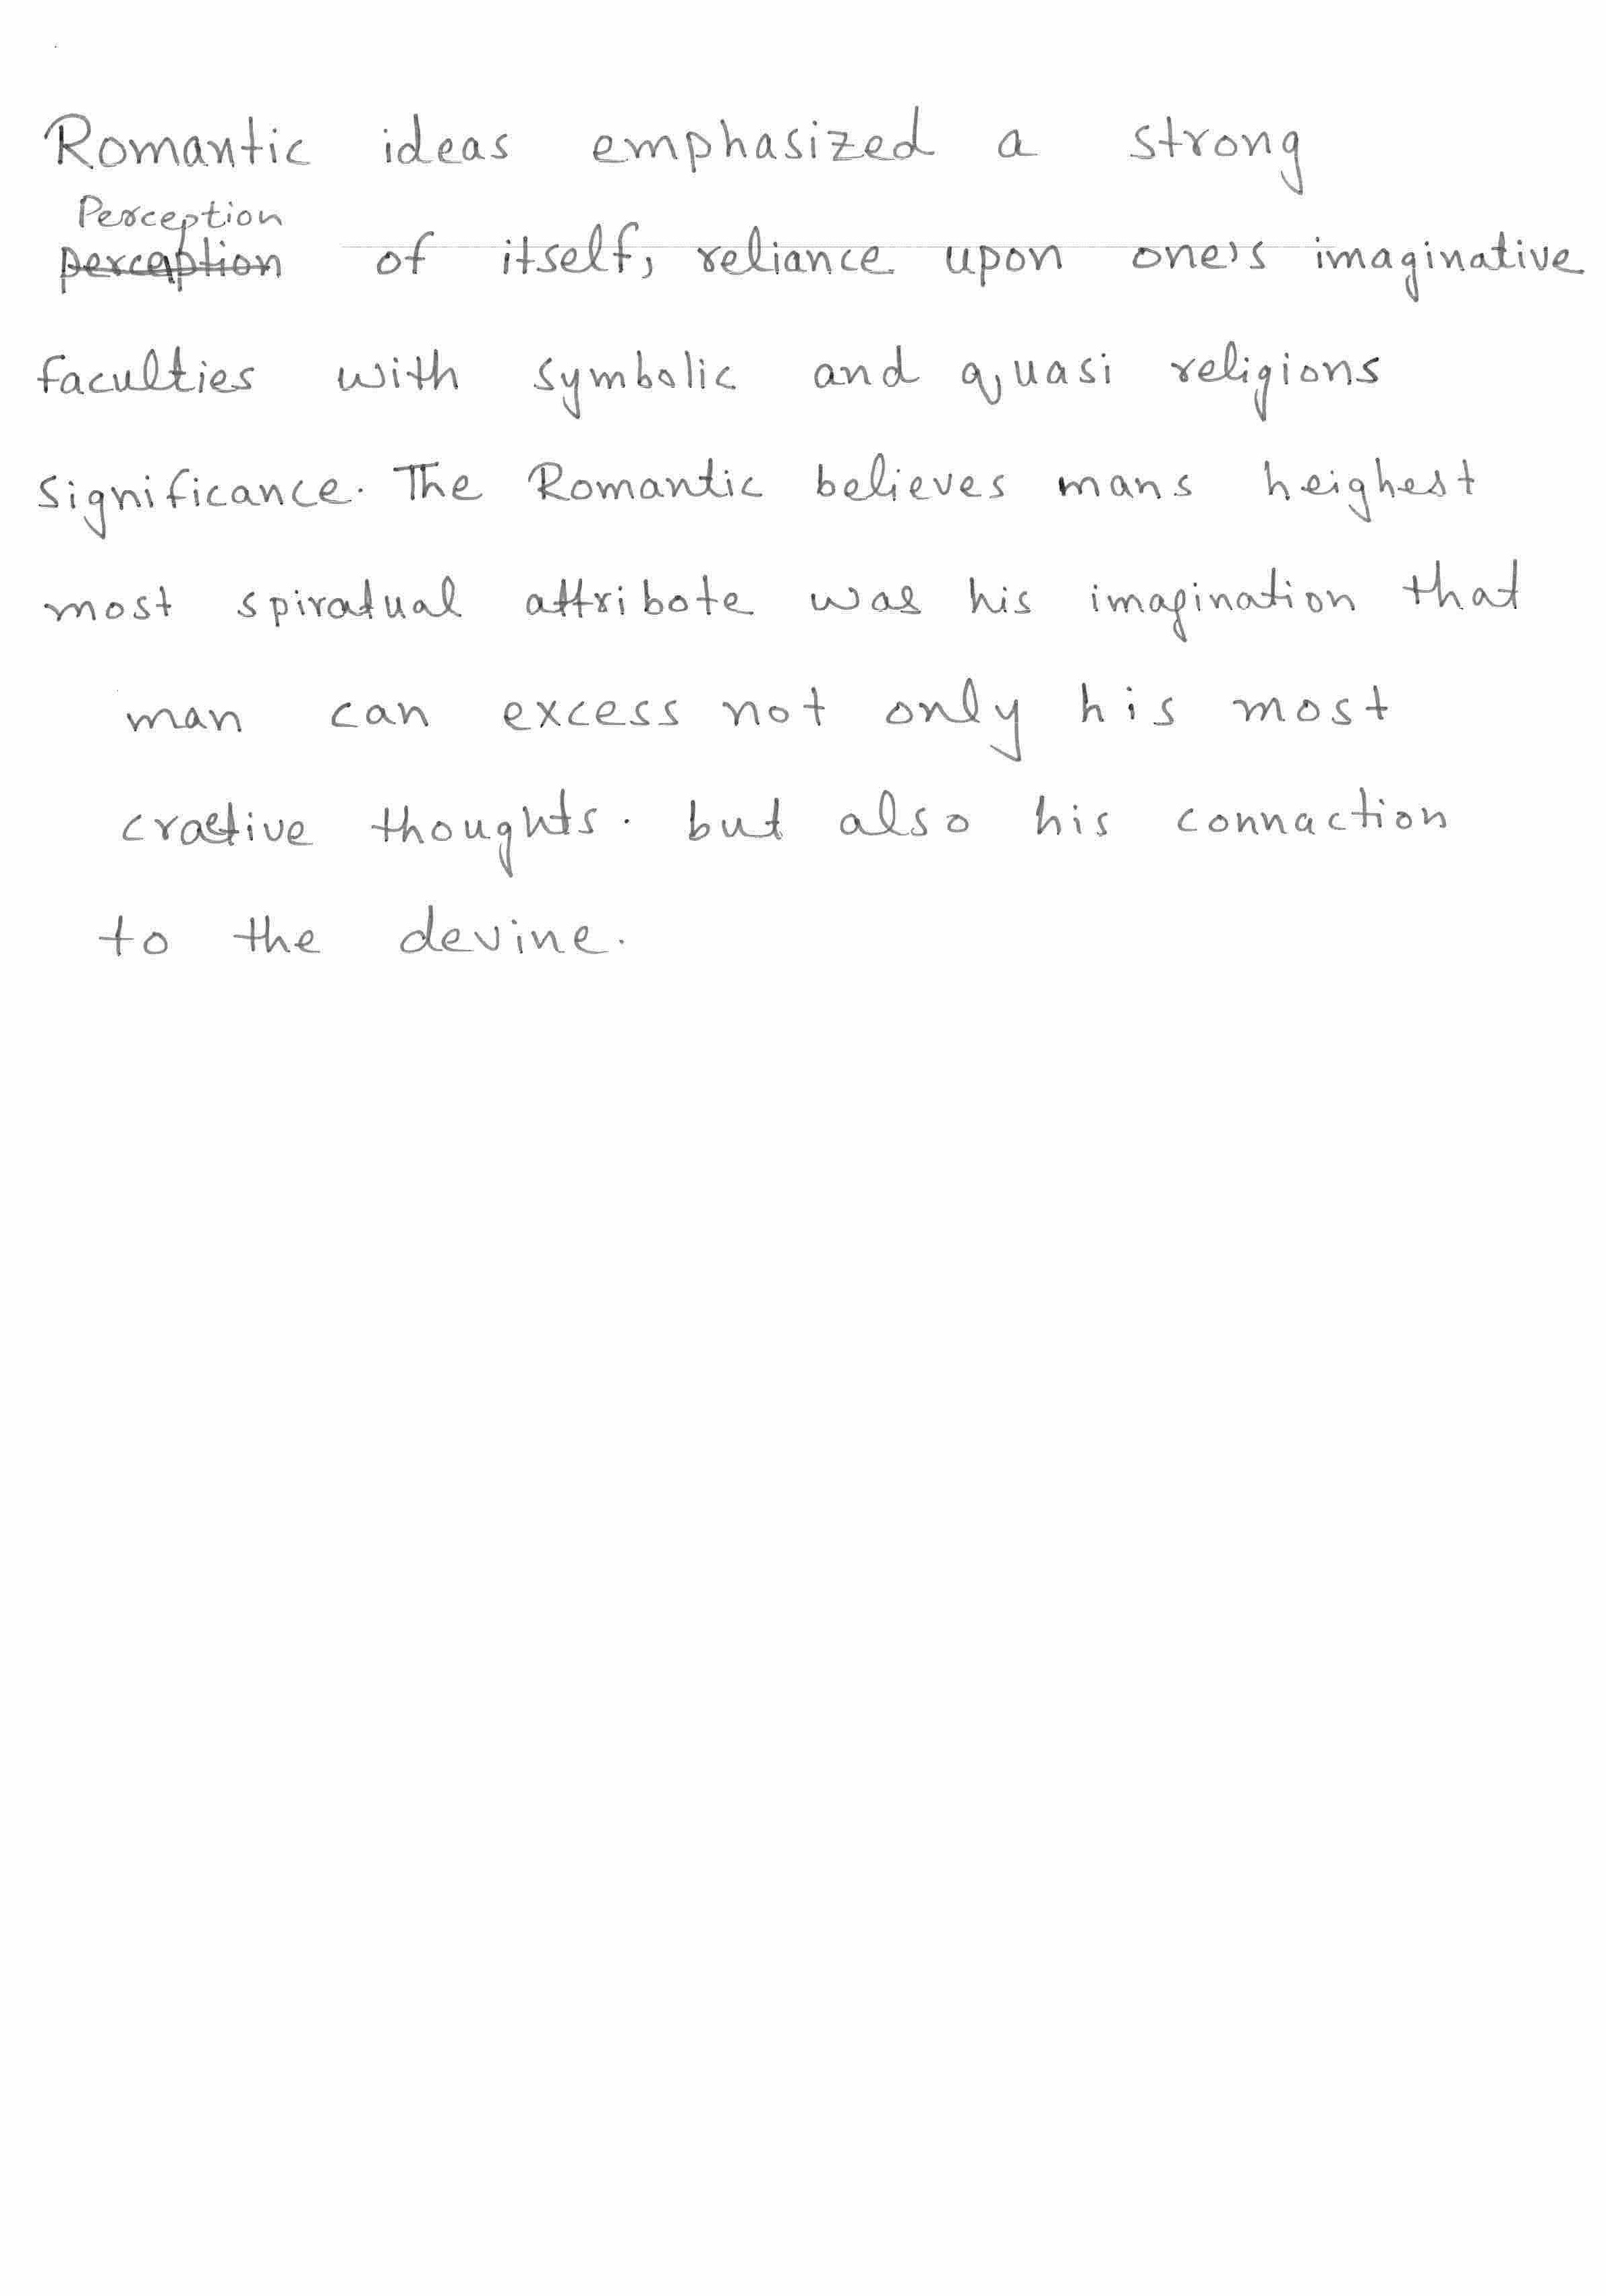 Romantic ideas emphasized a strong
Perception
perception of itself, reliance upon one's imaginative
faculties with symbolic and quasi religions
significance. The Romantic believes mans heighest
most spiratual attribote was his imagination that
man can excess not only his most
cractive thoughts. but also his connaction
to the devine.